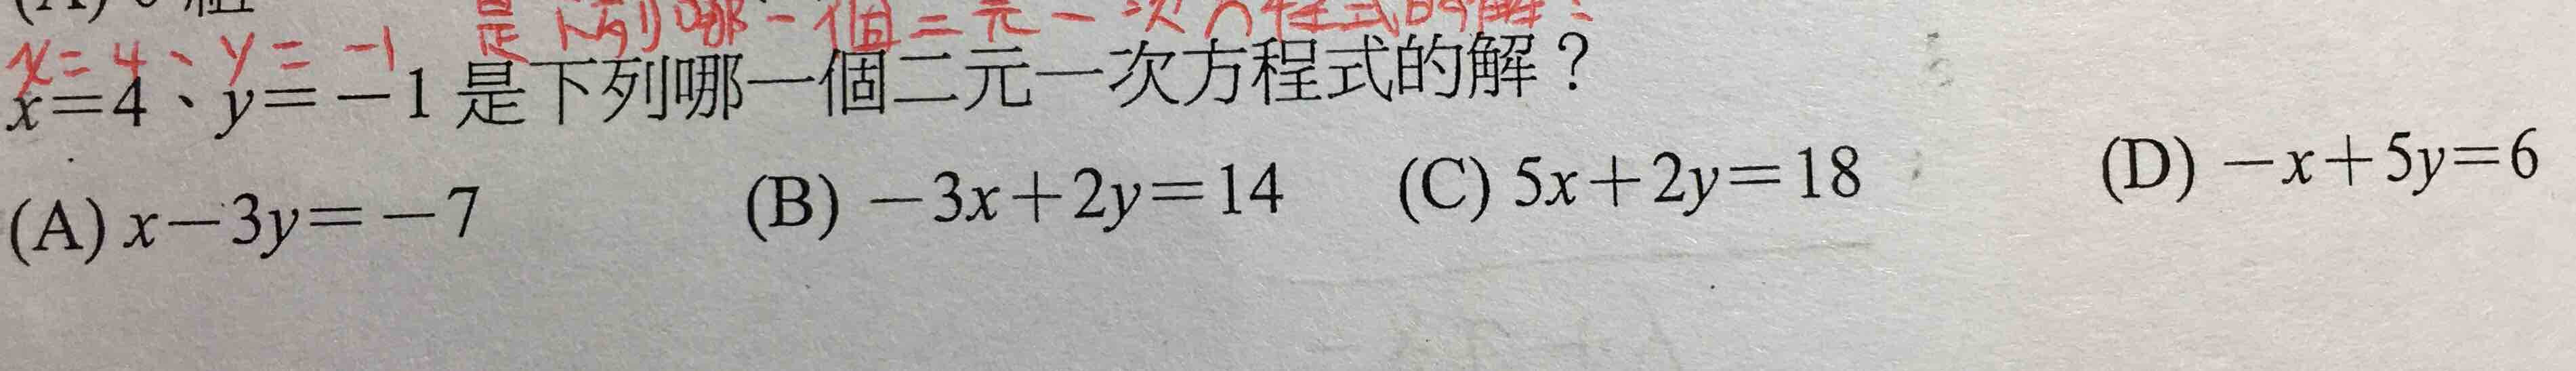 x=4、y=-1 是下列哪一個二元一次方程式的解
x=4、y=-1 是下列哪一個二元一次方程式的解？
(A) x-3y=-7 (B) -3x+2y=14 (C) 5x+2y=18 (D) -x+5y=6